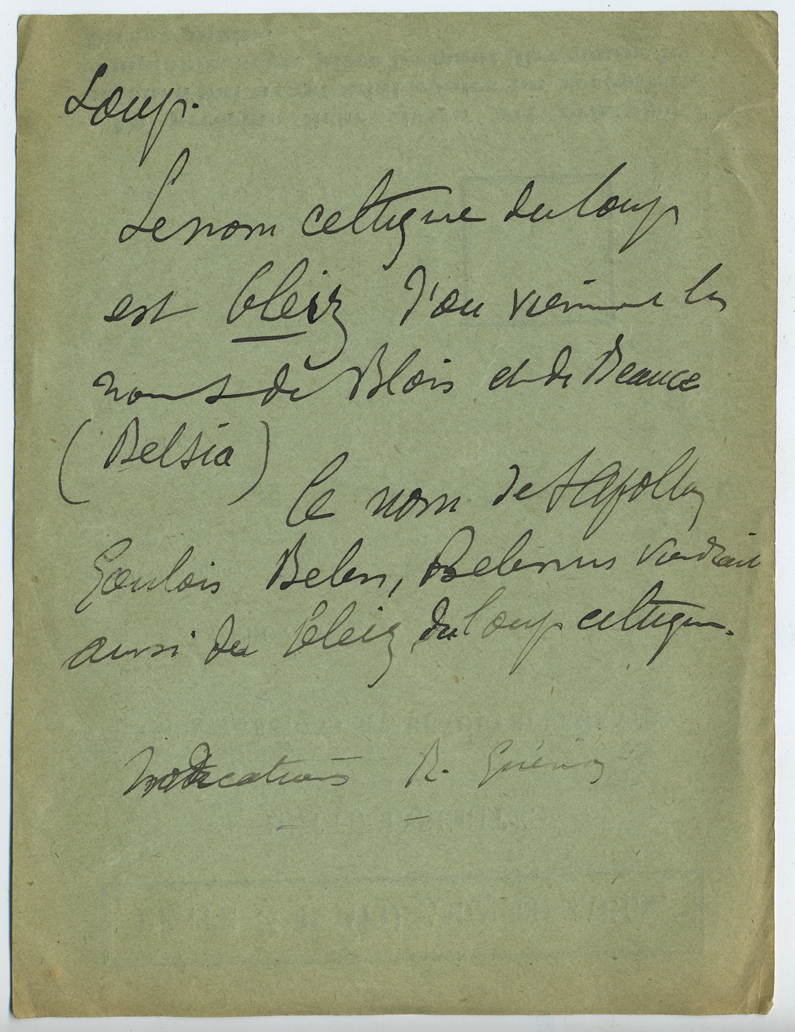 Loup.
Le nom celtique du loup
est bleiz d'ou viennent les
noms de Blois et de Beauce
(Belsia)
Le nom de l'Apollon
Gaulois Belen, Belenus viendrait
aussi du bleiz du loup celtique.
Indications R. Guérin